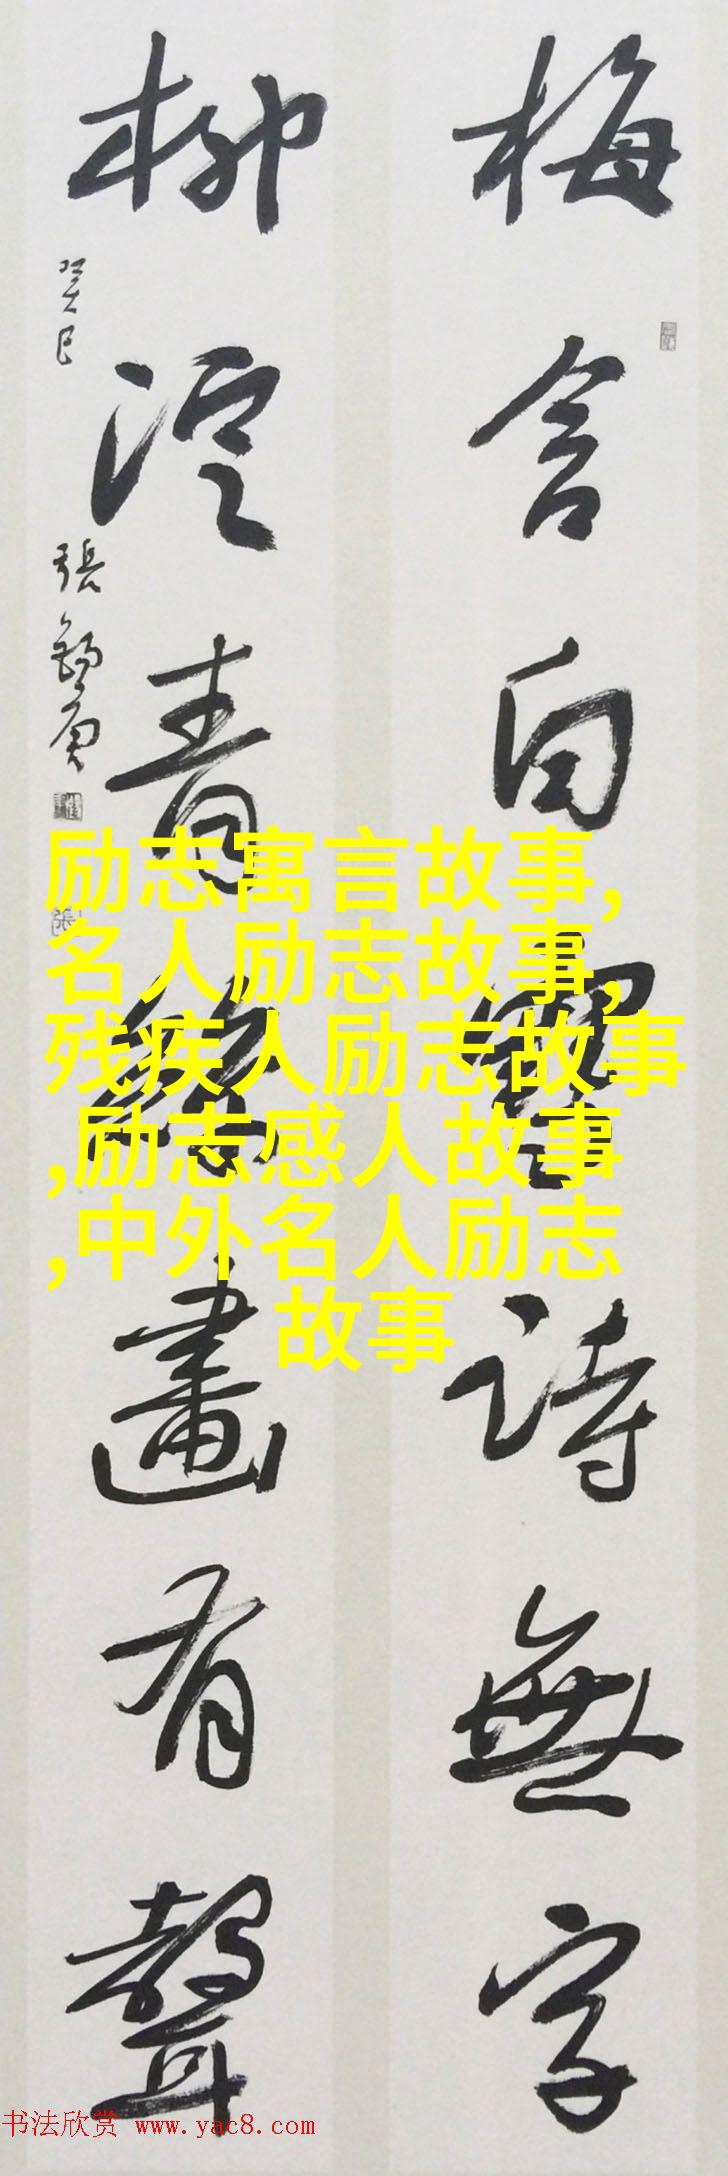 梅含白雪詩無字
柳浥青煙畫有聲
癸巳
張錫庚
励志寓言故事,
名人励志故事,
残疾人励志故事
,励志感人故事
,中外名人励志
故事
书法欣赏 www.yac8.com